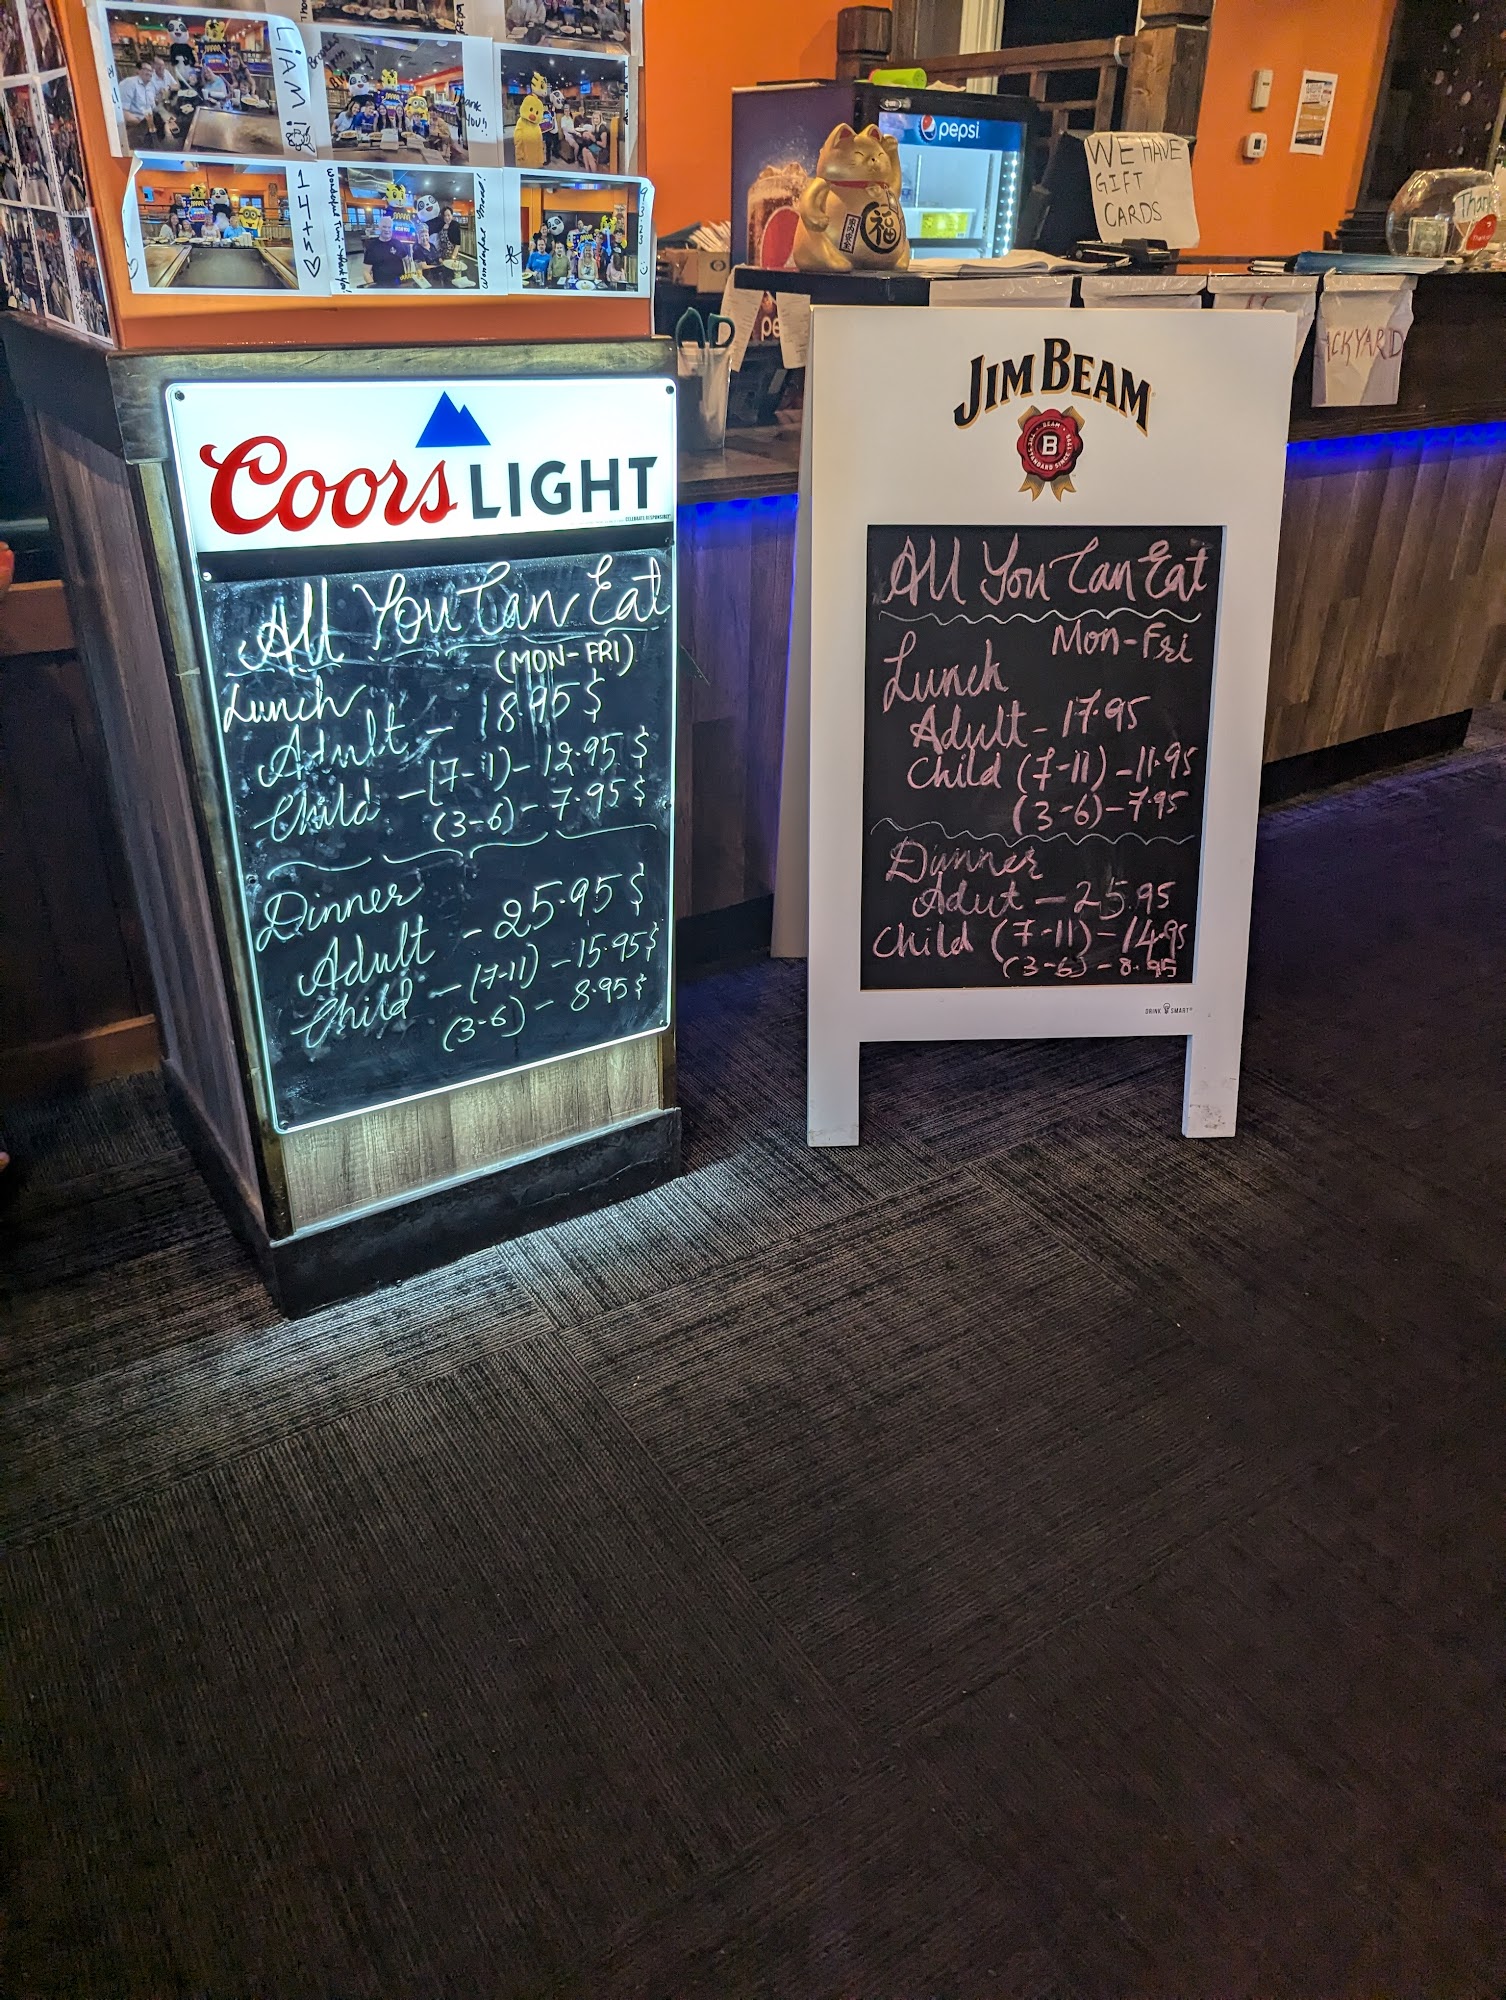 LIAM!
Thank
You!!
14+5♡
Wonderful Time, Thank You!
pepsi
WE HAVE
GIFT
CARDS
福
Coors LIGHT
CELEBRATE RESPONSIBLY
All You Can Eat
(MON-FRI)
Lunch
Adult - 18.95 $
Child - (7-1) - 12.95 $
(3-6) - 7.95 $
Dinner
Adult - 25.95 $
Child - (7-11) - 15.95 $
(3-6) - 8.95 $
JIM BEAM
B
All You Can Eat
Mon-Fri
Lunch
Adult - 17.95
Child (7-11) - 11.95
(3-6) - 7.95
Dinner
Adut - 25.95
Child (7-11) - 14.95
(3-6) - 8.95
DRINK SMART